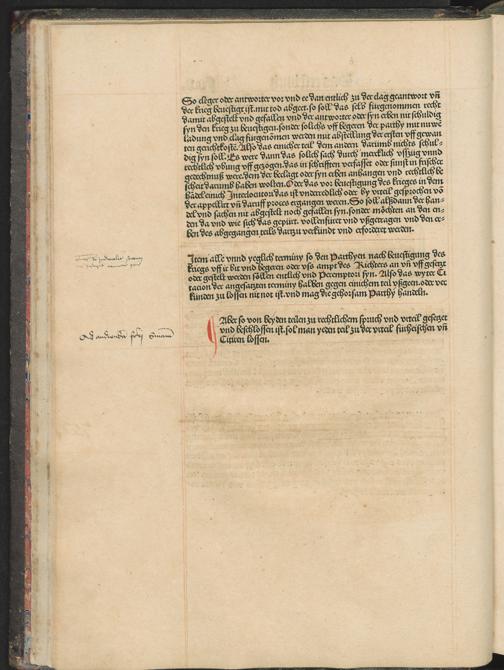 So cleger oder antworter vor vnd ee dan entlich zu der clag geantwort vñ
der krieg beuestigt ist. mit tod abgeet. so soll das selb fuergenomen recht
damit abgestelt vnd gefallen vnd der antworter oder syn erben nit schuldig
syn den krieg zu beuestigen. sonder solichs vff begeren der parthy mit nuwer
ladung vnd clag fuergenomen werden mit abstellung der ersten vff gewan
ten gerichtskostē. Also das einicher teil dem andern darumb nichts schul-
dig syn soll. Es were dann das solich sach durch mercklich vffzüg vnnd
rechtlich übung vff gezogen. das in schrifften verfasset oder sunst in frischer
gedechtnuß were. dem der beclagt oder syn erben anhangen vnd rechtlich be
scheit darumb haben wolten. Oder das vor beuestigung des krieges in dem
handel einich Interlocutori das ist vnderredlich oder by vrteil gesprochen vō
der appellirt vñ daruff process ergangen weren. So soll alßdann der han-
del vnd sachen nit abgestelt noch gefallen syn. sonder möchten an den en-
den da vnd wie sich das gepürt. vollenfüret vnd vßgetragen vnd den er-
ben des abgegangen teils darzu verkündt vnd erfordert werden.
Item alle vnnd yeglich terminy so den Parthyen nach beuestigung des
kriegs vff ir bit vnd begeren oder vß ampt des Richters an vñ vff gesetzt
oder gestelt werden söllen entlich vnd Peremptori syn. Also das wyter Ci
tacion der angesatzten terminy halben gegen einichem teil vßgeen. oder ver
künden zu lossen nit not ist. vnd mag der gehorsam Parthy handeln.
Ad audiendū
Aber so von beyden teilen zu rechtlichem spruch vnd vrteil gesetzet
vnd beschlossen ist. sol man yeden teil zu der vrteil fürheischen vñ
Citiren lossen.